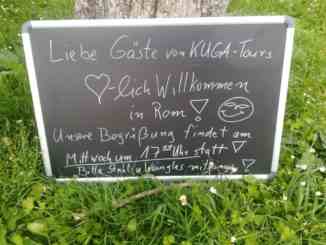 Liebe Gäste von KUGA-Tours
♡-lich Willkommen
in Rom!
Unsere Begrüßung findet am
Mittwoch um 17 Uhr statt!
Bitte